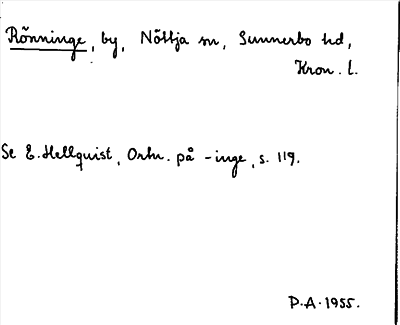 Rönninge, by, Nöttja sn, Sunnerbo hd,
Kron. l.
Se E. Hellquist, Ortn. på -inge, s. 119.
P.A. 1955.